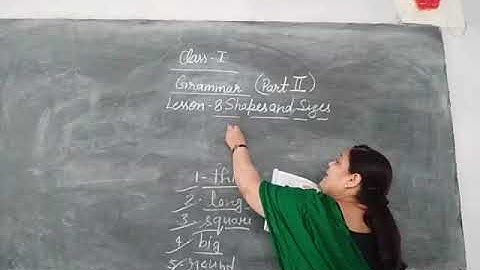 Class-I
Grammar (Part II)
Lesson-8 Shapes and Sizes
1-
2. long
3. square
4. big
5. round